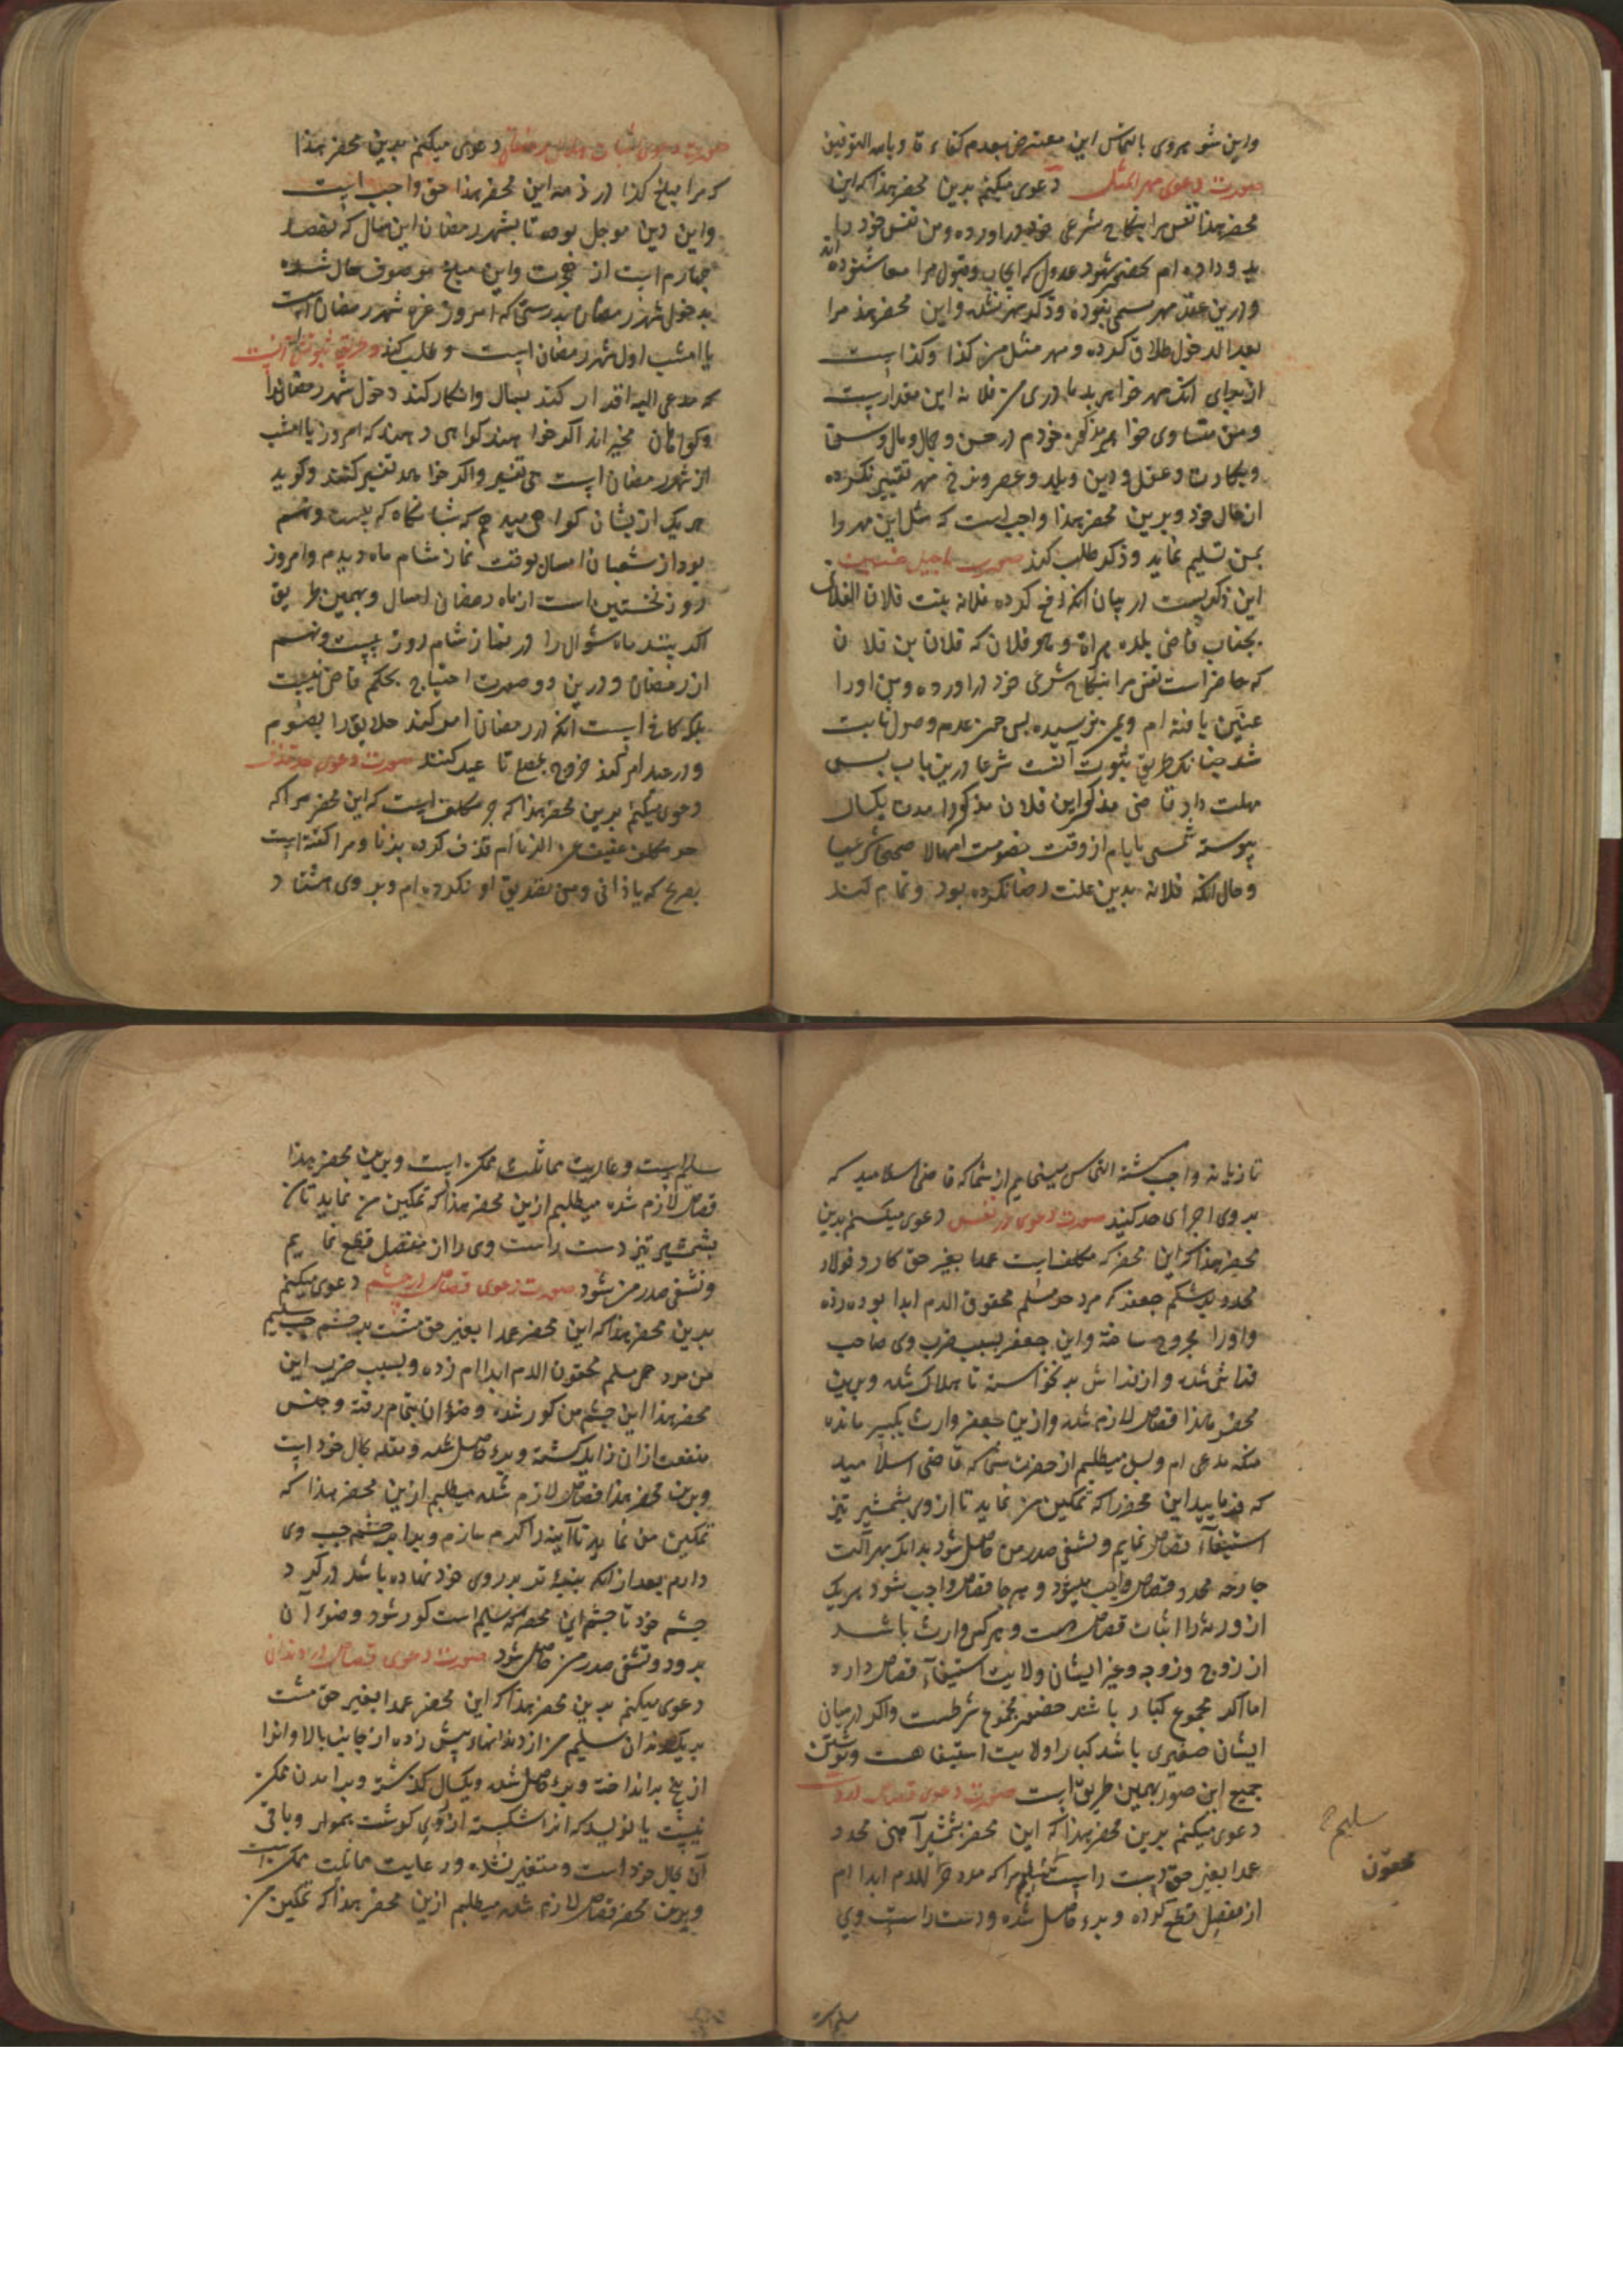 واین شوهر وی بالتماس این معترض بعدم کفاءة وبالله التوفیق
صورت دعوی مهر المثل دعوی میکنم بدین محضر هذا که این
محضر هذا نفس مرا بنکاح شرعی خود دراورده ومن نفس خود را
بدو داده ام بحضور شهود عدول که ایجاب وقبول مرا معا شنوده اند
ودرین عقد مهر مسمی نبوده وذکر مهر نشده واین محضر هذا مرا
بعد الدخول طلاق کرده ومهر مثل من کذا وکذا است
از برای آنکه مهر خواهر پدر مادری من فلانه این مقدارست
ومن مساوی خواهر مذکوره خودم در حسن وجمال ومال وسن
وبکارت وعقل ودین وبلد وعصر ونرخ مهر تغییر نکرده
از حال خود وبرین محضر هذا واجب است که مثل این مهر را
بمن تسلیم نماید وذکر طلب کند صورت تأجیل عنین
این ذکریست در بیان آنکه رفع کرده فلانه بنت فلان الفلان
بجناب قاضی بلده هراة ونحو فلان که فلان بن فلان
که حاضر است نفس مرا بنکاح شرعی خود دراورده ومن اورا
عنین یافته ام وبمن نرسیده پس چون عدم وصول ثابت
شد چنانکه طریق ثبوت آنست شرعا درین باب پس
مهلت داد قاضی مذکور این فلان مذکور را مدت یکسال
پیوسته شمسی بایام از وقت خصومت امهالا صحیحا شرعیا
وحال آنکه فلانه بدین علت رضا نکرده بود وتمام کند
دعوی میکنم بدین محضر هذا
که مرا مبلغ کذا در ذمه این محضر هذا حق واجب است
واین دین موجل بوده تا بشهر رمضان این سال که نهصد
چهارم است از هجرت واین مبلغ موصوف حال شده
بدخول شهر رمضان بدرستی که امروز غره شهر رمضان است
یا امشب اول شهر رمضان است وطلب کند وطریق ثبوتش آنست
که مدعی الیه اقرار کند بمال وانکار کند دخول شهر رمضان را
وکواهان مخیر اند اکر خواهند کواهی دهند که امروز یا امشب
از شهر رمضان است بی تفسیر واکر خواهند تفسیر کنند وکوید
هر یک از ایشان کواهی میدهم که شبانکاه که بیست ونهم
بود از شعبان امسال بوقت نماز شام ماه دیدم وامروز
روز نخستین است از ماه رمضان امسال وبهمین طریق
اکر بینند ماه شوال را در نماز شام روز بیست ونهم
از رمضان ودرین دو صورت احتیاج بحکم قاضی نیست
بلکه کافی است آنکه در رمضان امر کند خلایق را بصوم
ودر عید امر کند خروج بمصلی تا عید کنند صورت دعوی حد قذف
دعوی میکنم بدین محضر هذا که حر مکلف است که این محضر مرا که
حر مکلف عفیف عن الزنا ام قذف کرده بزنا ومرا کفته است
بصریح که یا زانی ومن تصدیق او نکرده ام وبر وی هشتاد
تازیانه واجب کشته التماس مینمایم از شما که قاضی اسلامید که
بر وی اجرای حد کنید صورت دعوی در نفس دعوی میکنم بدین
محضر هذا که این محضر که مکلف است عمدا بغیر حق کارد فولاد
محدد بر شکم جعفر که مرد حر مسلم محقون الدم ابدا بوده زده
واورا مجروح ساخته واین جعفر بسبب ضرب وی صاحب
فراش شده واز فراش بر نخواسته تا هلاک شده وبرین
محضر هذا قصاص لازم شده وازین جعفر وارث یکپسر مانده
منکه مدعی ام وبس میطلبم از حضرت شما که قاضی اسلامید
که فرمایید این محضر را که تمکین من نماید تا از وی بشمشیر تیز
استیفاء قصاص نمایم وتشفی صدر من حاصل شود بدانکه بهر آلت
جارحه محدد قصاص واجب میشود وهر جا قصاص واجب شود هر یک
از ورثه را اثبات قصاص هست وهر کس وارث باشد
از زوج وزوجه وغیر ایشان ولایت استیفاء قصاص دارد
اما اکر مجموع کبار باشند حضور مجموع شرطست واکر در میان
ایشان صغیری باشد کبار را ولایت استیفا هست ونوشتن
جمیع این صور بهمین طریق است صورت دعوی قصاص در دست
دعوی میکنم بدین محضر هذا که این محضر بشمشیر آهنی محدد
عمدا بغیر حق دست راست سلیم مرا که مرد حر الدم ابدا ام
از مفصل قطع کرده وبرء حاصل شده ودست راست وی
سلیم
محقون
سلیم است
سلیم است ورعایت مماثلت ممکن است وبرین محضر هذا
قصاص لازم شده میطلبم ازین محضر هذا که تمکین من نماید تا من
بشمشیر تیز دست راست وی را از مفصل قطع نمایم
وتشفی صدر من شود صورت دعوی قصاص در چشم دعوی میکنم
بدین محضر هذا که این محضر عمدا بغیر حق مشت بر چشم چپ سلیم
من مرد حر مسلم محقون الدم ابدا ام زده وبسبب ضرب این
محضر هذا این چشم من کور شده وضوء آن بتمام رفته وجنس
منفعت ازان زایل کشته وبرء حاصل شده ومقله بحال خود است
وبرین محضر هذا قصاص لازم شده میطلبم ازین محضر هذا که
تمکین من نماید تا آیینه را کرم سازم وبرابر چشم چپ وی
دارم بعد از آنکه پنبه تر بر روی خود نهاده باشد در کرد
چشم خود تا چشم این محضر که سلیم است کور شود وضوء آن
برود وتشفی صدر من حاصل شود صورت دعوی قصاص در دندان
دعوی میکنم بدین محضر هذا که این محضر عمدا بغیر حق مشت
بر یک دندان سلیم من از دندانهاء پیش زده از جانب بالا وانرا
از بیخ برانداخته وبرء حاصل شده ویکسال کذشته وبرآمدن ممکن
نیست یا نویسد که انرا شکسته از کوشت بهموار وباقی
آن بحال خود است ومتغیر نشده ورعایت مماثلت ممکن است
وبرین محضر قصاص لازم شده میطلبم ازین محضر هذا که تمکین من